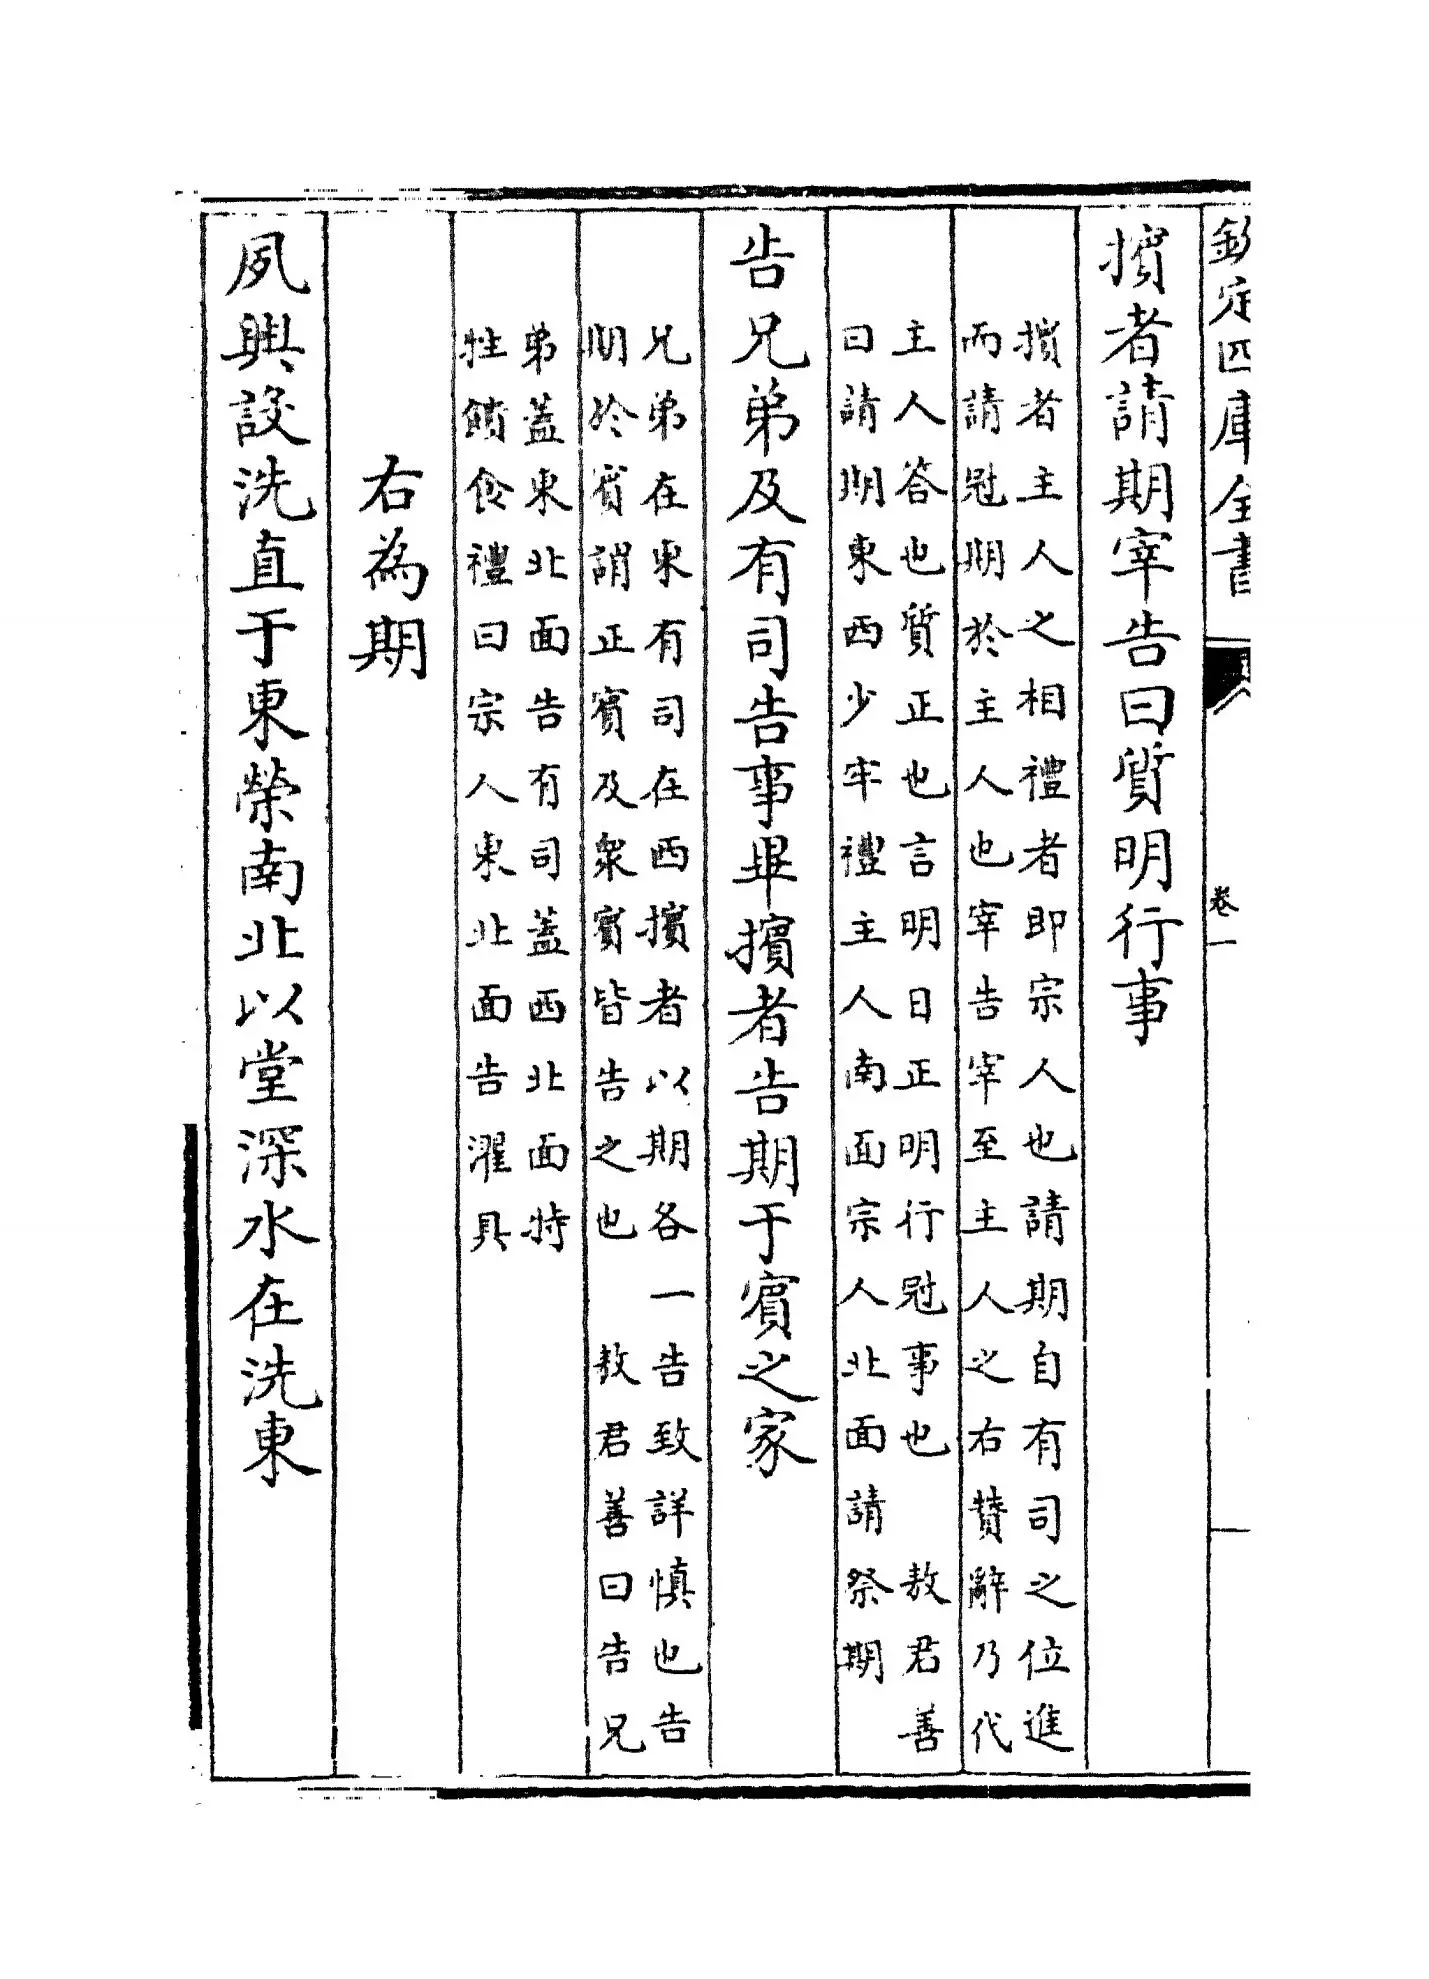 欽定四庫全書
卷一
擯者請期宰告曰質明行事
擯者主人之相禮者即宗人也請期自有司之位進
而請冠期於主人也宰告宰至主人之右贊辭乃代
主人答也質正也言明日正明行冠事也 敖君善
曰請期東西少牢禮主人南面宗人北面請祭期
告兄弟及有司告事畢擯者告期于賓之家
兄弟在東有司在西擯者以期各一告致詳慎也告
期於賓謂正賓及衆賓皆告之也 敖君善曰告兄
弟蓋東北面告有司蓋西北面特
牲饋食禮曰宗人東北面告濯具
右為期
夙興設洗直于東榮南北以堂深水在洗東